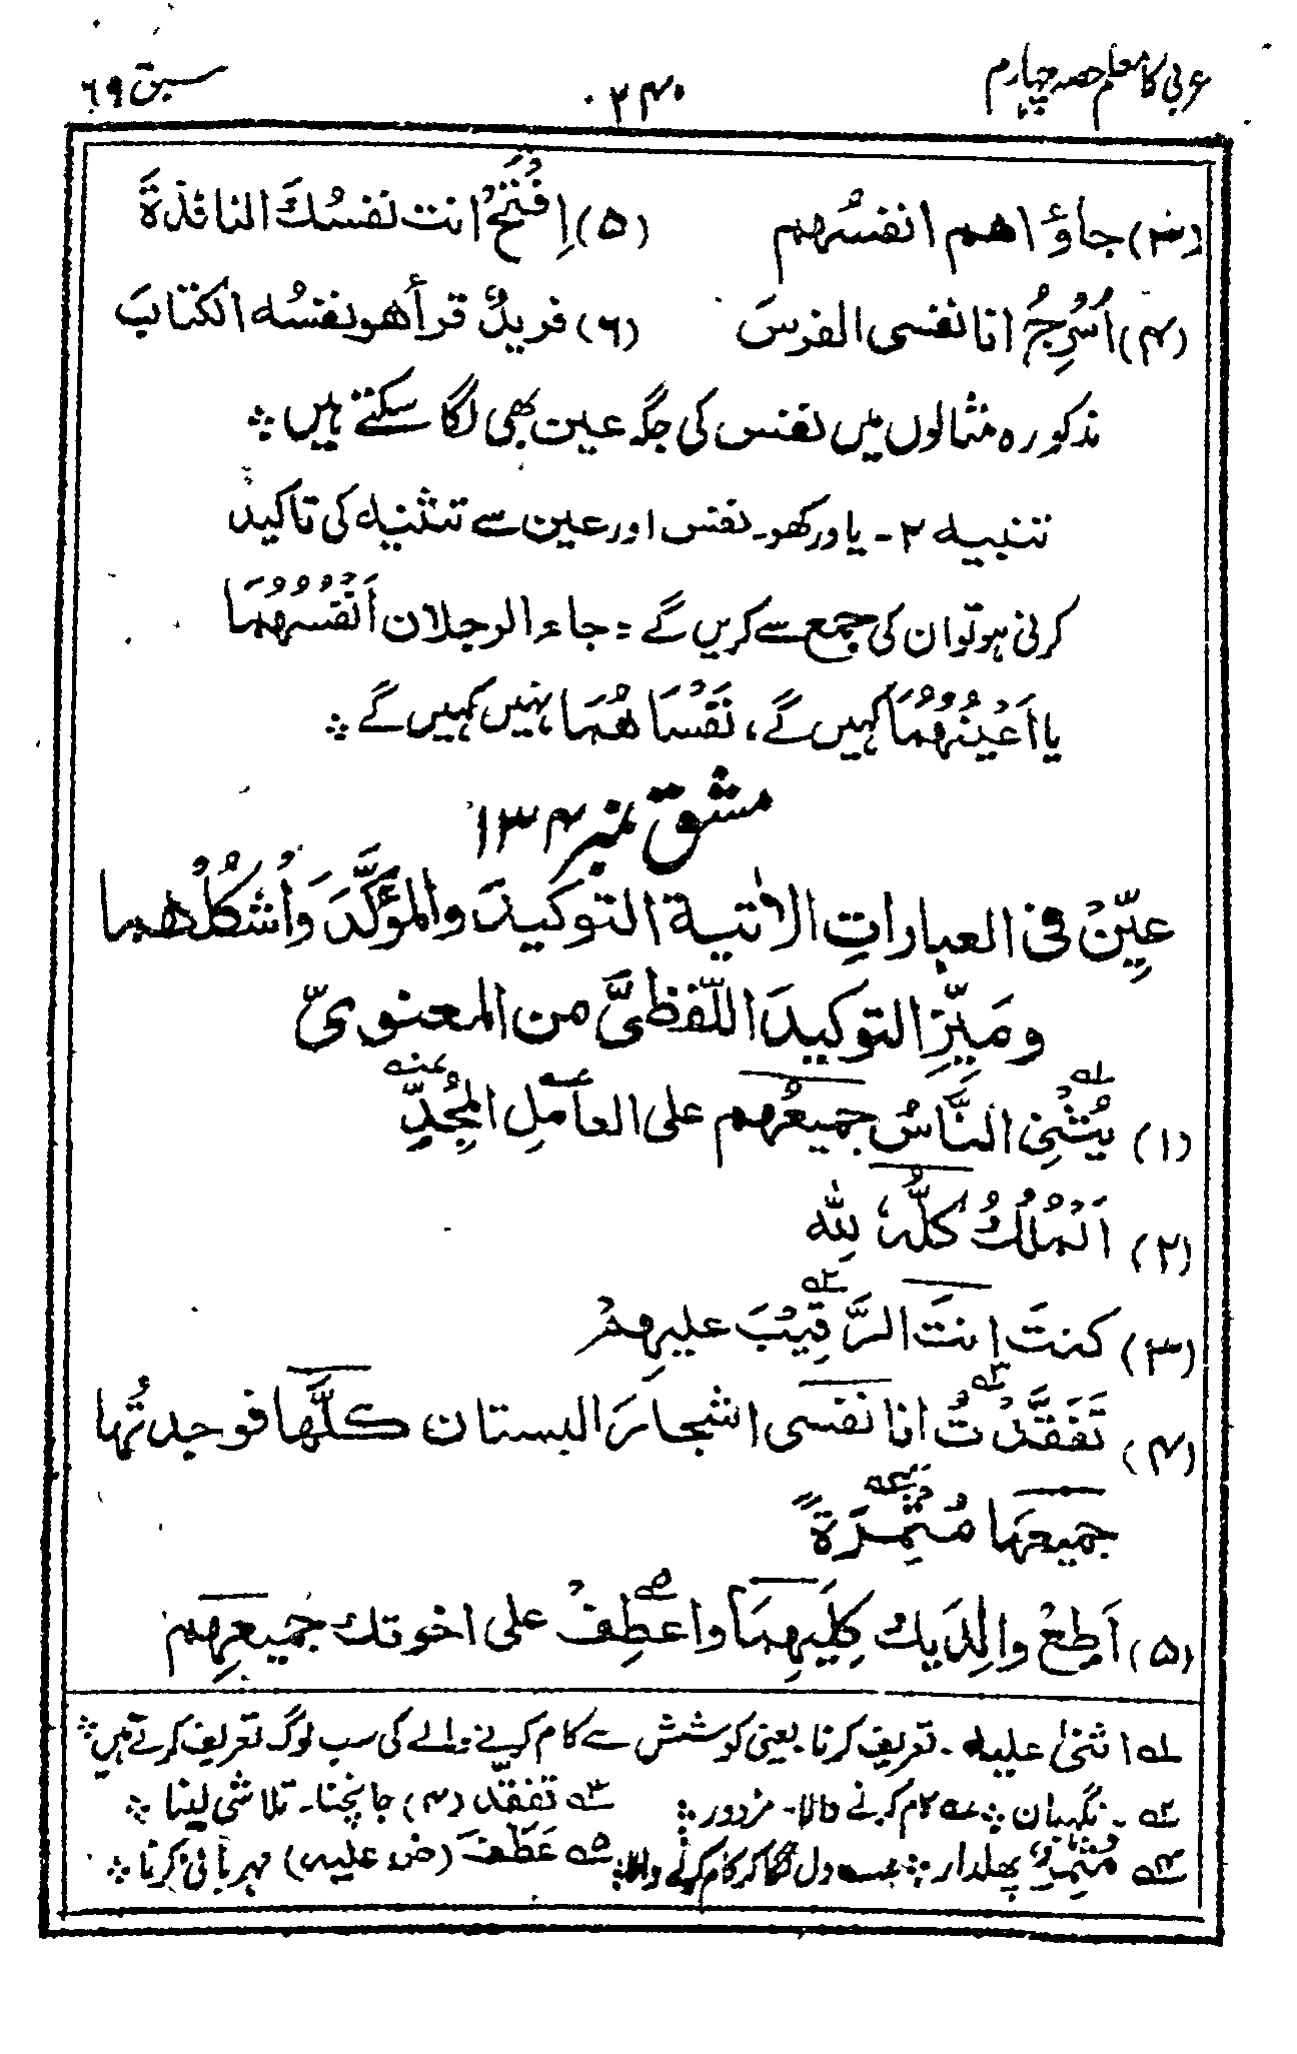 عربی کا معلم حصہ چہارم ۲۴۰ سبق ۶۹
(۳) جاؤا هم انفسُهم (۵) اِفْتَحْ انت نفسُكَ النافذةَ
(۴) اُسْرِجُ انا نفسی الفرسَ (۶) فریدٌ قرأ هو نفسُه الکتابَ
مذکورہ مثالوں میں نفس کی جگہ عین بھی لگا سکتے ہیں ؞
تنبیہ ۲- یاد رکھو۔ نفس اور عین سے تثنیہ کی تاکید
کرنی ہو تو ان کی جمع سے کریں گے : جاء الرجلان اَنْفُسُهُمَا
یا اَعْیُنُهُمَا کہیں گے، نَفْسَا هُمَا نہیں کہیں گے ؞
مشق نمبر ۱۳۴
عیِّنْ فی العباراتِ الاٰتیة التوکیدَ والمؤَکَّدَ وَاُشْكُلْهما
ومَیِّزِ التوکیدَ اللّفظیَّ من المعنویّ
(۱) یُثْنِی النَّاسُ جمیعُهم علی العامِلِ المُجِدِّ
(۲) اَلْمُلْكُ كُلُّهٗ لِلّٰه
(۳) کنتَ انتَ الرَّقِیْبَ علیهِمْ
(۴) تَفَقَّدْتُ انا نفسی اشجارَ البستان کلَّها فوجدتُها
جمیعَهَا مُثْمِرَةً
(۵) اَطِعْ والِدَیك کِلَیْهِمَا واعْطِفْ علی اخوتك جَمیعِهِم
۱؎ اثنیٰ علیه - تعریف کرنا۔ یعنی کوشش سے کام کرنے والے کی سب لوگ تعریف کرتے ہیں ؞
۲؎ - نگہبان ؞ عه کام کرنے والا۔ مزدور ؞ ۳؎ تفقّد (۴) جانچنا۔ تلاشی لینا ؞
۴؎ مُثْمِرٌ پھلدار ؞ دل لگا کر کام کرنے والا ؞ ۵؎ عَطَفَ (ض۔ علیه) مہربانی کرنا ؞